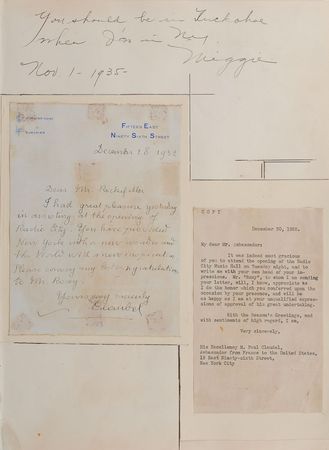 You should be in Tuckahoe
when I'm in N.Y.
Miggie
Nov. 1 - 1935 -
Fifteen East
Ninety Sixth Street
December 28 1932
Dear Mr. Rockefeller
I had great pleasure yesterday
in assisting at the opening of
Radio City. You have provided
New York with a new wonder and
the World with a new
Please convey my congratulation
to Mr Roxy.
Yours very sincerely
Claudel
COPY
December 30, 1932.
My dear Mr. Ambassador:
It was indeed most gracious
of you to attend the opening of the Radio
City Music Hall on Tuesday night, and to
write me with your own hand of your im-
pressions. Mr. "Roxy", to whom I am sending
your letter, will, I know, appreciate as
I do the honor which you conferred upon the
occasion by your presence, and will be
as happy as I am at your unqualified expres-
sions of approval of his great undertaking.
With the Season's Greetings, and
with sentiments of high regard, I am,
Very sincerely,
His Excellency M. Paul Claudel,
Ambassador from France to the United States,
15 East Ninety-sixth Street,
New York City